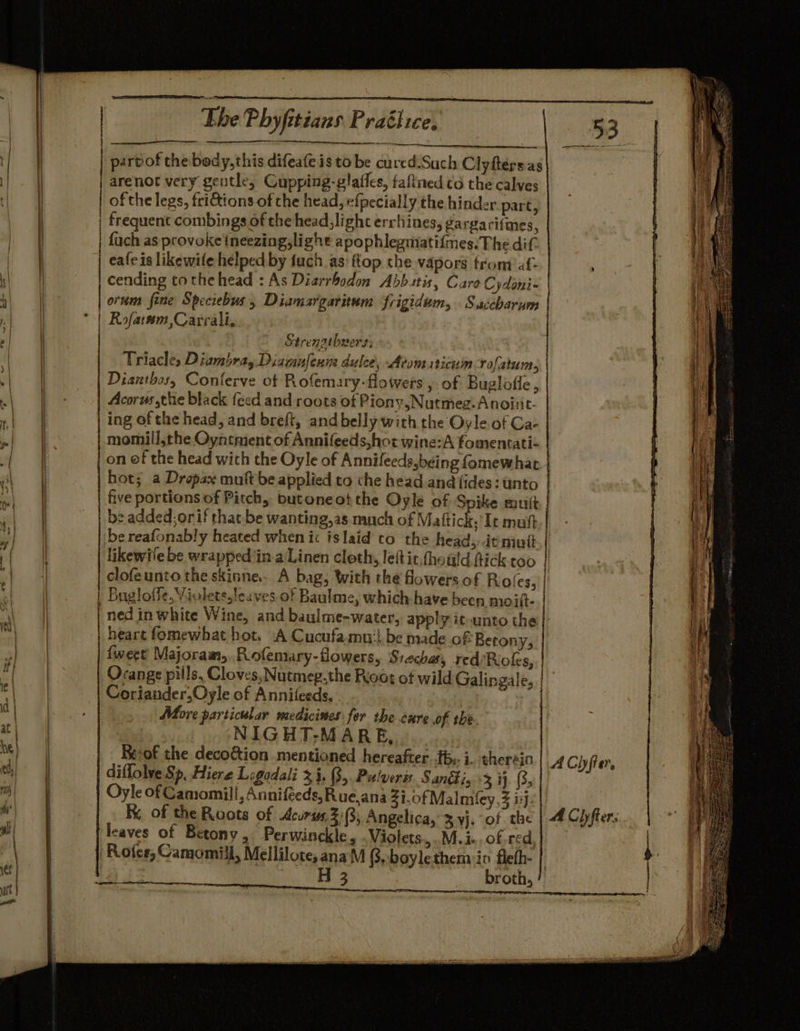 The Phyſitians Practice.
53
part of the body, this diſeaſe is to be cured. Such Clyſters as
are not very gentle, Cupping-glaſſes, faſtned to the calves
of the legs, frictions of the head, eſpecially the hinder part,
frequent combings of the head, light errhines, gargariſmes,
ſuch as provoke ſneezing, light apophlegmatiſmes. The diſ-
eaſe is likewiſe helped by ſuch as ſtop the vapors from aſ-
cending to the head : As Diarrhodon Abbatis, Caro Cydoni-
orum ſine Speciebus, Diamargaritum frigidum, Saccharum
Roſatum, Carrali.
Strengthners.
Triacle, Diambra, Diamuſcum dulce, Aromaticum roſatum,
Dianthos, Conſerve of Roſemary-flowers, of Bugloſſe,
Acorus, the black ſeed and roots of Piony, Nutmeg. Anoint-
ing of the head, and breſt, and belly with the Oyle of Ca-
momill, the Oyntment of Anniſeeds, hot wine: A fomentati-
on of the head with the Oyle of Anniſeeds, being ſomewhat
hot; a Dropax muſt be applied to the head and ſides: unto
five portions of Pitch, but one of the Oyle of Spike muſt
be added; or if that be wanting, as much of Maſtick; It muſt
be reaſonably heated when it is laid to the head, it muſt
likewiſe be wrapped in a Linen cloth, leſt it ſhould ſtick too
cloſe unto the skinne. A bag, with the flowers of Roſes,
Bugloſſe, Violets, leaves of Baulme, which have been moiſt-
ned in white Wine, and baulme-water, apply it unto the
heart ſomewhat hot. A Cucufa muſt be made of Betony,
ſweet Majoram, Roſemary-flowers, Stechas, red Roſes,
Orange pills, Cloves, Nutmeg, the Root of wild Galingale,
Coriander, Oyle of Anniſeeds.
More particular medicines for the cure of the
NIGHT-MARE.
℞ of the decoction mentioned hereafter ℔. i. therein
diſſolve Sp. Hiere Logodali ʒ i. ß, Pulveris Sancti, ʒ ij ß,
Oyle of Camomill, Anniſeeds, Rue, ana ℥i. of Malmſey ℥ iij.
A Clyſter.
℞ of the Roots of Acorus ℥ ß, Angelica, ʒ vj. of the
A Clyſter.
leaves of Betony, Perwinckle, Violets, M. i. of red
Roſes, Camomill, Mellilote, ana M ß. boyle them in fleſh-
H 3
broth,